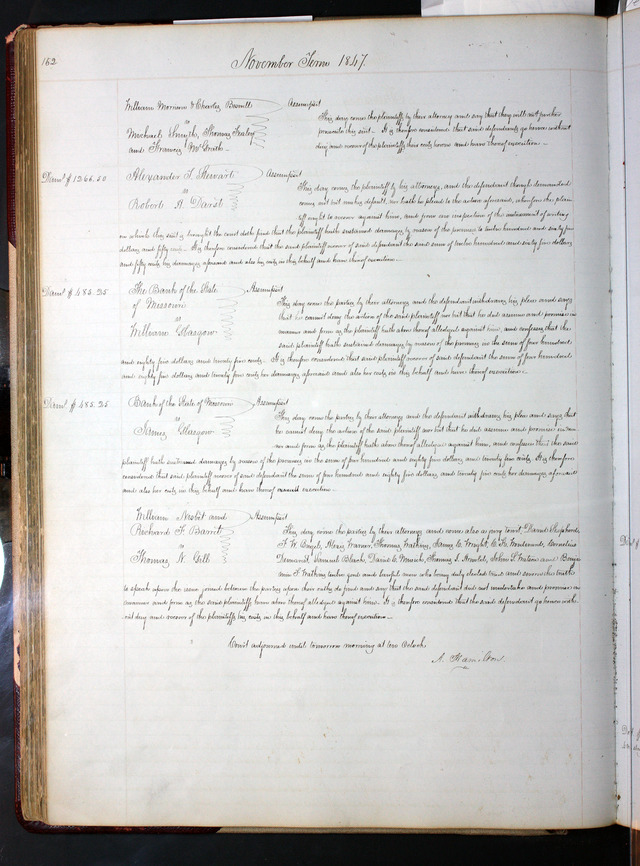 162
November Term 1847.
William Morrison & Charles
vs
Michael Smith, Thomas
and Francis McGrath
Assumpsit
This day come the plaintiffs by their attorney and say that they will not further
prosecute this suit. It is therefore considered that said defendants go hence without
day and recover of the plaintiffs their costs herein and have thereof execution.
Dam's $1266.50
Alexander T. Stewart
vs
Robert A. Darst
Assumpsit
This day comes the plaintiff by his attorney, and the defendant though demanded
comes not but makes default, nor hath he plead to the action aforesaid, wherefore the plain
tiff ought to recover against him, and from an inspection of the instrument of writing
on which this suit is brought the court doth find that the plaintiff hath sustained damages by reason of the premises to twelve hundred and sixty six
dollars and fifty cents. It is therefore considered that the said plaintiff recover of said defendant the said sum of twelve hundred and sixty six dollars
and fifty cents his damages aforesaid and also his costs in this behalf and have thereof execution.
Dam's $485.25
The Bank of the State
of Missouri
vs
William Glasgow
Assumpsit
This day come the parties by their attorneys and the defendant withdrawing his pleas and says
that he cannot deny the action of the said plaintiff nor but that he did assume and promise in
manner and form as the plaintiff hath above thereof alledged against him, and confesses that the
said plaintiff hath sustained damages by reason of the premises in the sum of four hundred
and eighty five dollars and twenty five cents. It is therefore considered that said plaintiff recover of said defendant the sum of four hundred
and eighty five dollars and twenty five cents her damages aforesaid and also her costs in this behalf and have thereof execution.
Dam's $485.25
Bank of the State of Missouri
vs
James Glasgow
Assumpsit
This day come the parties by their attorneys and the defendant withdrawing his plea and says that
he cannot deny the action of the said plaintiff nor but that he did assume and promise in man
ner and form as the plaintiff hath above thereof alledged against him, and confesses that the said
plaintiff hath sustained damages by reason of the premises in the sum of four hundred and eighty five dollars and twenty five cents. It is therefore
considered that said plaintiff recover of said defendant the sum of four hundred and eighty five dollars and twenty five cents her damages aforesaid
and also her costs in this behalf and have thereof execution.
William Nesbit and
Richard F. Barret
vs
Thomas N. Gill
Assumpsit
This day come the parties by their attorneys and come also a jury towit, David Shepherd,
F. W. Alexis Warner, Thomas Watkins, James C. Wright, C. Cornelius
Demarest, Samuel Black, David C. Thomas S. Arnold, John S. Watson and Benja
min F. Watkins twelve good and lawful men who being duly elected tried and sworn the truth
to speak upon the issue joined between the parties upon their oaths do find and say that the said defendant did not undertake and promise in
manner and form as the said plaintiffs have above thereof alledged against him. It is therefore considered that the said defendant go hence with
out day and recover of the plaintiffs his costs in this behalf and have thereof execution.
Court adjourned until tomorrow morning at ten Oclock
A. Hamilton